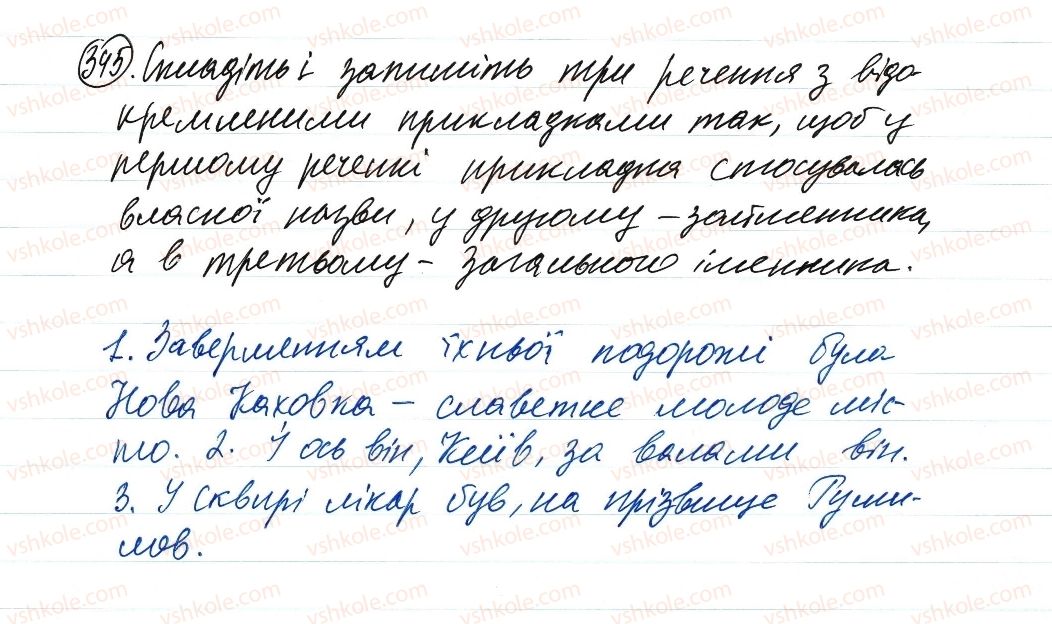 345. Складіть і запишіть три речення з відо-
кремленими прикладками так, щоб у
першому реченні прикладка стосувалась
власної назви, у другому – займенника,
а в третьому – загального іменника.
1. Завершенням їхньої подорожі була
Нова Каховка – славетне молоде міс-
то. 2. І ось він, Київ, за валами він.
3. У Сквирі лікар був, на прізвище Гуми-
лов.